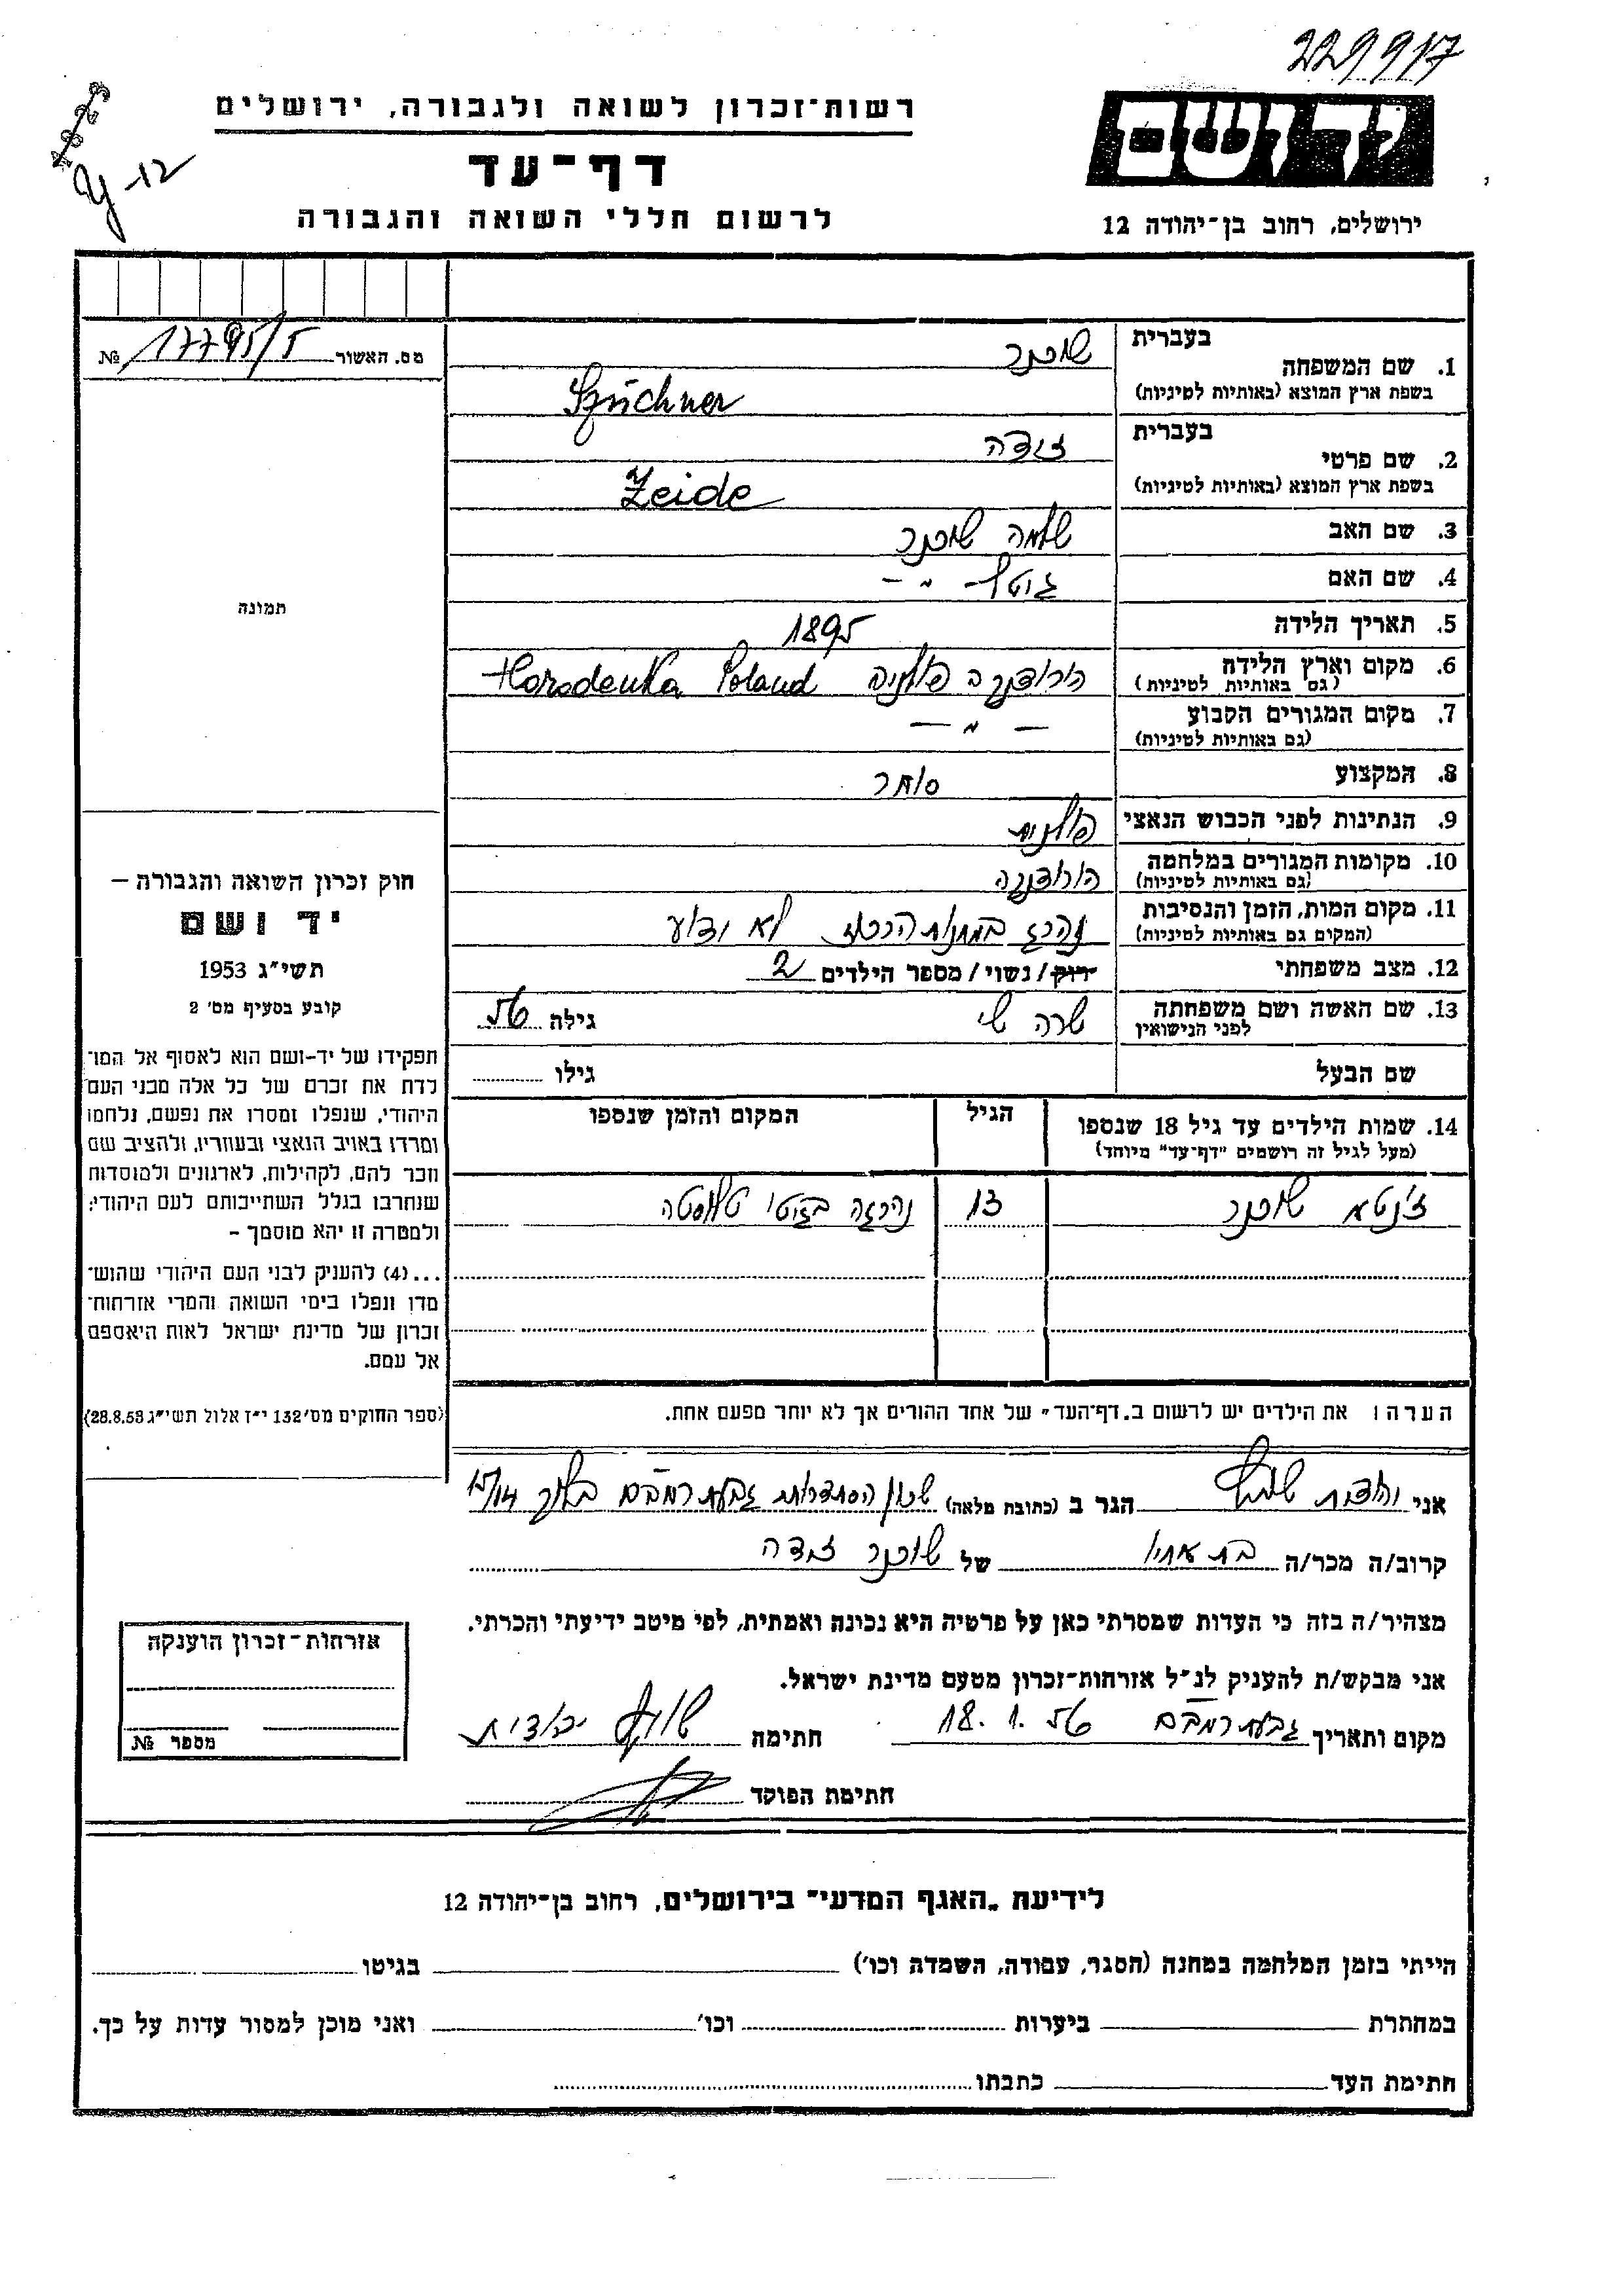 229917
רשות־זכרון לשואה ולגבורה, ירושלים
יד ושם
דף־עד
12
לרשום חללי השואה והגבורה
ירושלים, רחוב בן־יהודה 12
מס. האשור 17795/5 №
בעברית
1. שם המשפחה שוכנר
בשפת ארץ המוצא (באותיות לטיניות) Szüchner
בעברית
2. שם פרטי זיידה
בשפת ארץ המוצא (באותיות לטיניות) Zeide
3. שם האב שלמה שוכנר
4. שם האם -״-
5. תאריך הלידה 1895
6. מקום וארץ הלידה הורודנקה פולניה Horodenka Poland
(גם באותיות לטיניות)
7. מקום המגורים הקבוע -״-
(גם באותיות לטיניות)
8. המקצוע סוחר
9. הנתינות לפני הכבוש הנאצי פולנית
10. מקומות המגורים במלחמה הורודנקה
(גם באותיות לטיניות)
11. מקום המות, הזמן והנסיבות נהרג במחנות הריכוז לא ידוע
(המקום גם באותיות לטיניות)
12. מצב משפחתי רווק/נשוי/מספר הילדים 2
13. שם האשה ושם משפחתה שרה גילה 56
לפני הנישואין
שם הבעל גילו
14. שמות הילדים עד גיל 18 שנספו הגיל המקום והזמן שנספו
(מעל לגיל זה רושמים "דף־עד" מיוחד)
שוכנר 13 נהרגה בגיטו טלוסטה
הערה: את הילדים יש לרשום ב„דף־העד" של אחד ההורים אך לא יותר מפעם אחת.
תמונה
חוק זכרון השואה והגבורה –
יד ושם
תשי״ג 1953
קובע בסעיף מס׳ 2
תפקידו של יד-ושם הוא לאסוף אל המו־
לדת את זכרם של כל אלה מבני העם
היהודי, שנפלו ומסרו את נפשם, נלחמו
ומרדו באויב הנאצי ובעוזריו, ולהציב שם
וזכר להם, לקהילות, לארגונים ולמוסדות
שנחרבו בגלל השתייכותם לעם היהודי;
ולמטרה זו יהא מוסמך –
...(4) להעניק לבני העם היהודי שהוש־
מדו ונפלו בימי השואה והמרי אזרחות־
זכרון של מדינת ישראל לאות היאספם
אל עמם.
(ספר החוקים מס׳ 132 י״ז אלול תשי״ג 28.8.53)
אני יהודית הגר ב (כתובת מלאה) שכון הסתדרות גבעת רמב״ם בלוק 15/14
קרוב/ה מכר/ה בת אחיו של שוכנר זיידה
מצהיר/ה בזה כי העדות שמסרתי כאן על פרטיה היא נכונה ואמתית, לפי מיטב ידיעתי והכרתי.
אני מבקש/ת להעניק לנ״ל אזרחות־זכרון מטעם מדינת ישראל.
מקום ותאריך גבעת רמב״ם 18.1.56 חתימה יהודית
חתימת הפוקד
אזרחות־זכרון הוענקה
מספר №
לידיעת „האגף המדעי" בירושלים, רחוב בן־יהודה 12
הייתי בזמן המלחמה במחנה (הסגר, עבודה, השמדה וכו׳) בגיטו
במחתרת ביערות וכו׳ ואני מוכן למסור עדות על כך.
חתימת העד כתבתו